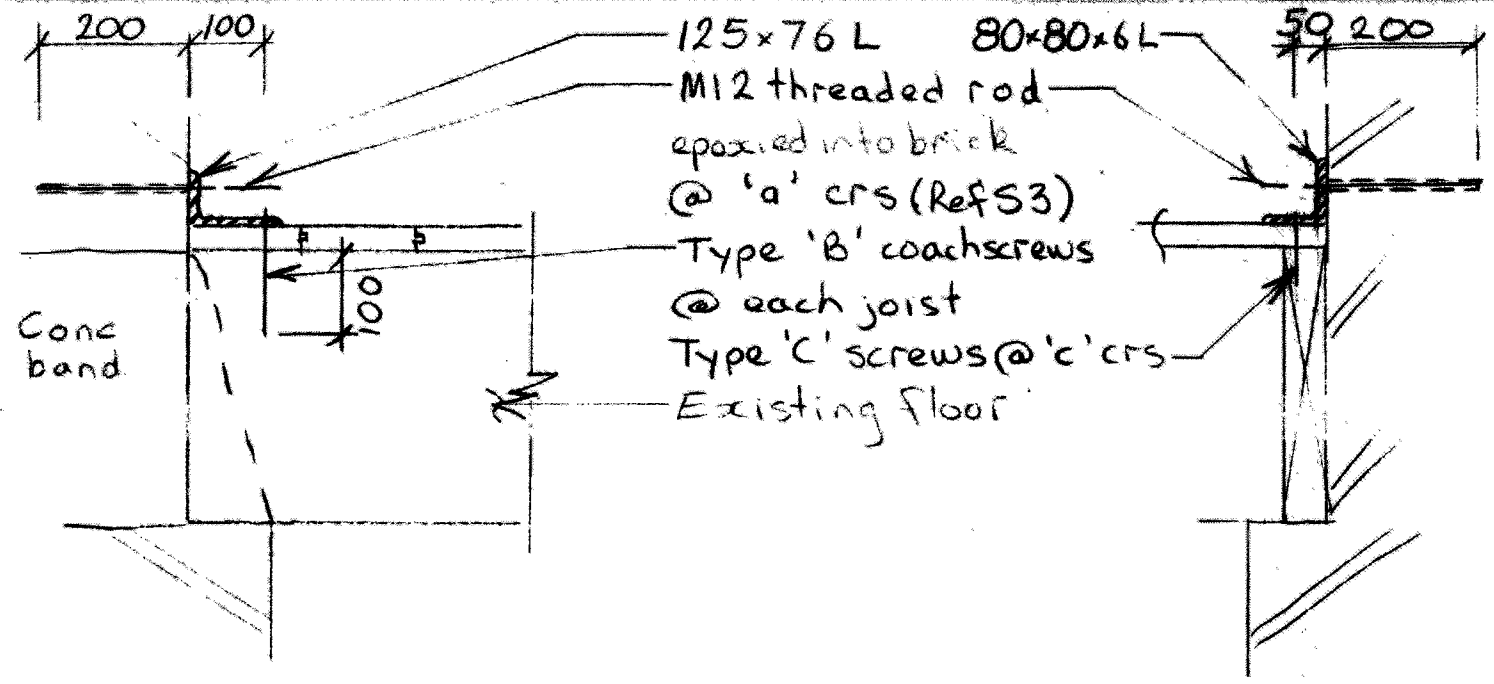 200
100
125×76 L
80×80×6 L
50
200
M12 threaded rod
epoxied into brick
@ 'a' crs (Ref S3)
Type 'B' coachscrews
@ each joist
Type 'C' screws @ 'c' crs
Existing floor
100
Conc
band